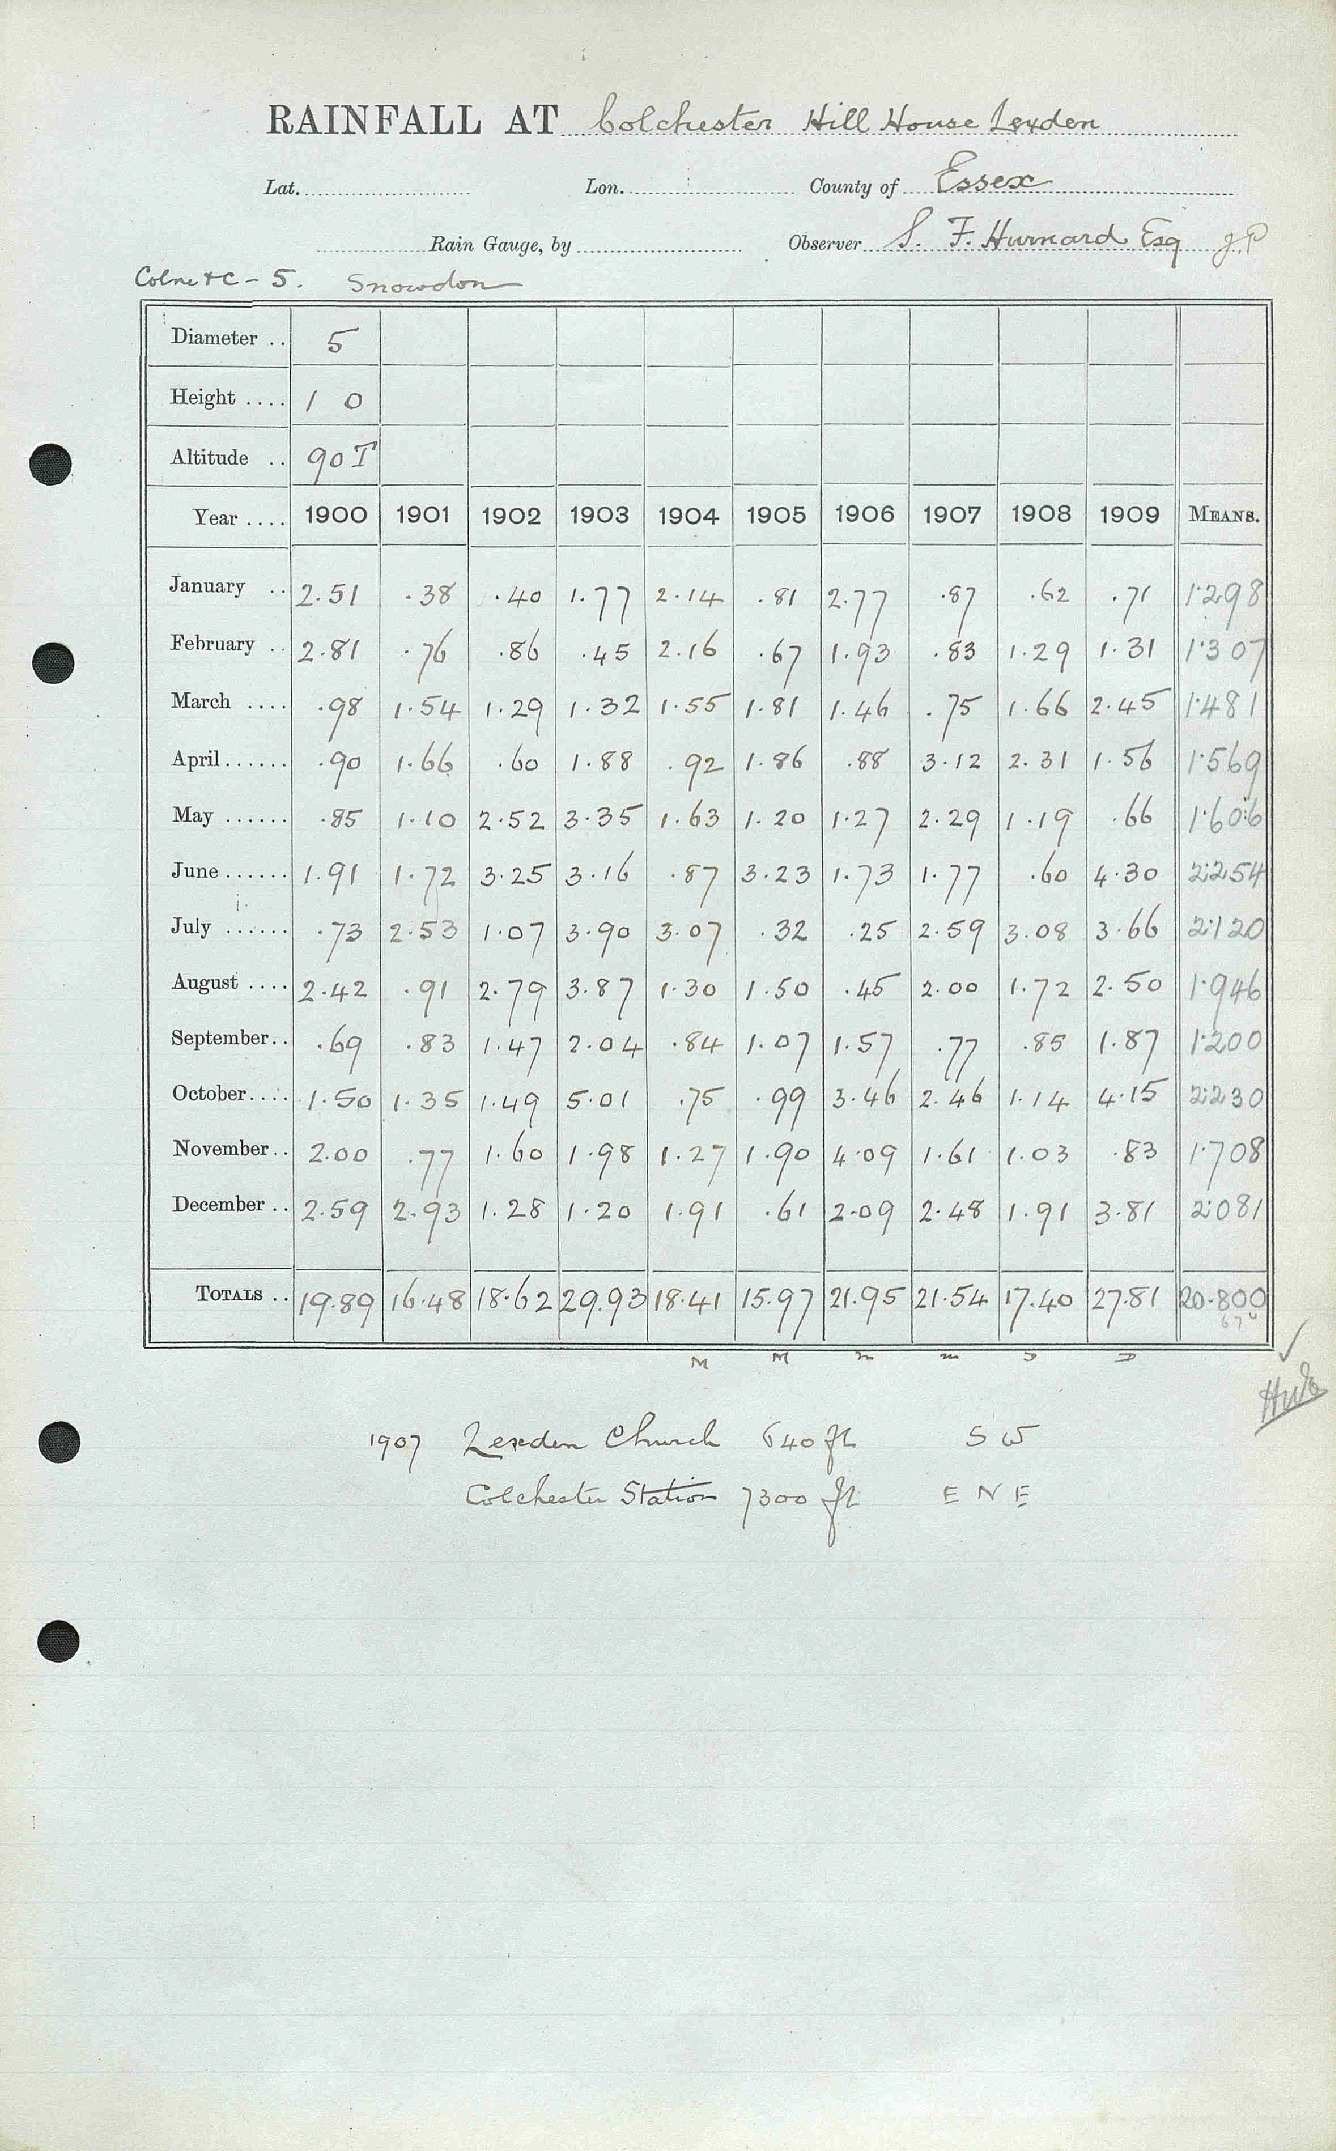 RAINFALL AT Colchester Hill House Lexden
Lat. Lon. County of Essex
Rain Gauge, by Observer S. F. Hurnard Esq J.P
Colne &c - 5. Snowdon
Diameter .. 5
Height .... 1 0
Altitude .. 90 T
Year .... 1900 1901 1902 1903 1904 1905 1906 1907 1908 1909 MEANS.
January .. 2.51 .38 .40 1.77 2.14 .81 2.77 .87 .62 .71 1.298
February .. 2.81 .76 .86 .45 2.16 .67 1.93 .83 1.29 1.31 1.307
March .... .98 1.54 1.29 1.32 1.55 1.81 1.46 .75 1.66 2.45 1.481
April...... .90 1.66 .60 1.88 .92 1.86 .88 3.12 2.31 1.56 1.569
May ...... .85 1.10 2.52 3.35 1.63 1.20 1.27 2.29 1.19 .66 1.606
June...... 1.91 1.72 3.25 3.16 .87 3.23 1.73 1.77 .60 4.30 2.254
July ...... .73 2.53 1.07 3.90 3.07 .32 .25 2.59 3.08 3.66 2.120
August .... 2.42 .91 2.79 3.87 1.30 1.50 .45 2.00 1.72 2.50 1.946
September.. .69 .83 1.47 2.04 .84 1.07 1.57 .77 .85 1.87 1.200
October.... 1.50 1.35 1.49 5.01 .75 .99 3.46 2.46 1.14 4.15 2.230
November.. 2.00 .77 1.60 1.98 1.27 1.90 4.09 1.61 1.03 .83 1.708
December .. 2.59 2.93 1.28 1.20 1.91 .61 2.09 2.48 1.91 3.81 2.081
TOTALS .. 19.89 16.48 18.62 29.93 18.41 15.97 21.95 21.54 17.40 27.81 20.800
M M
1907 Lexden Church 640 ft S W
Colchester Station 7300 ft E N E